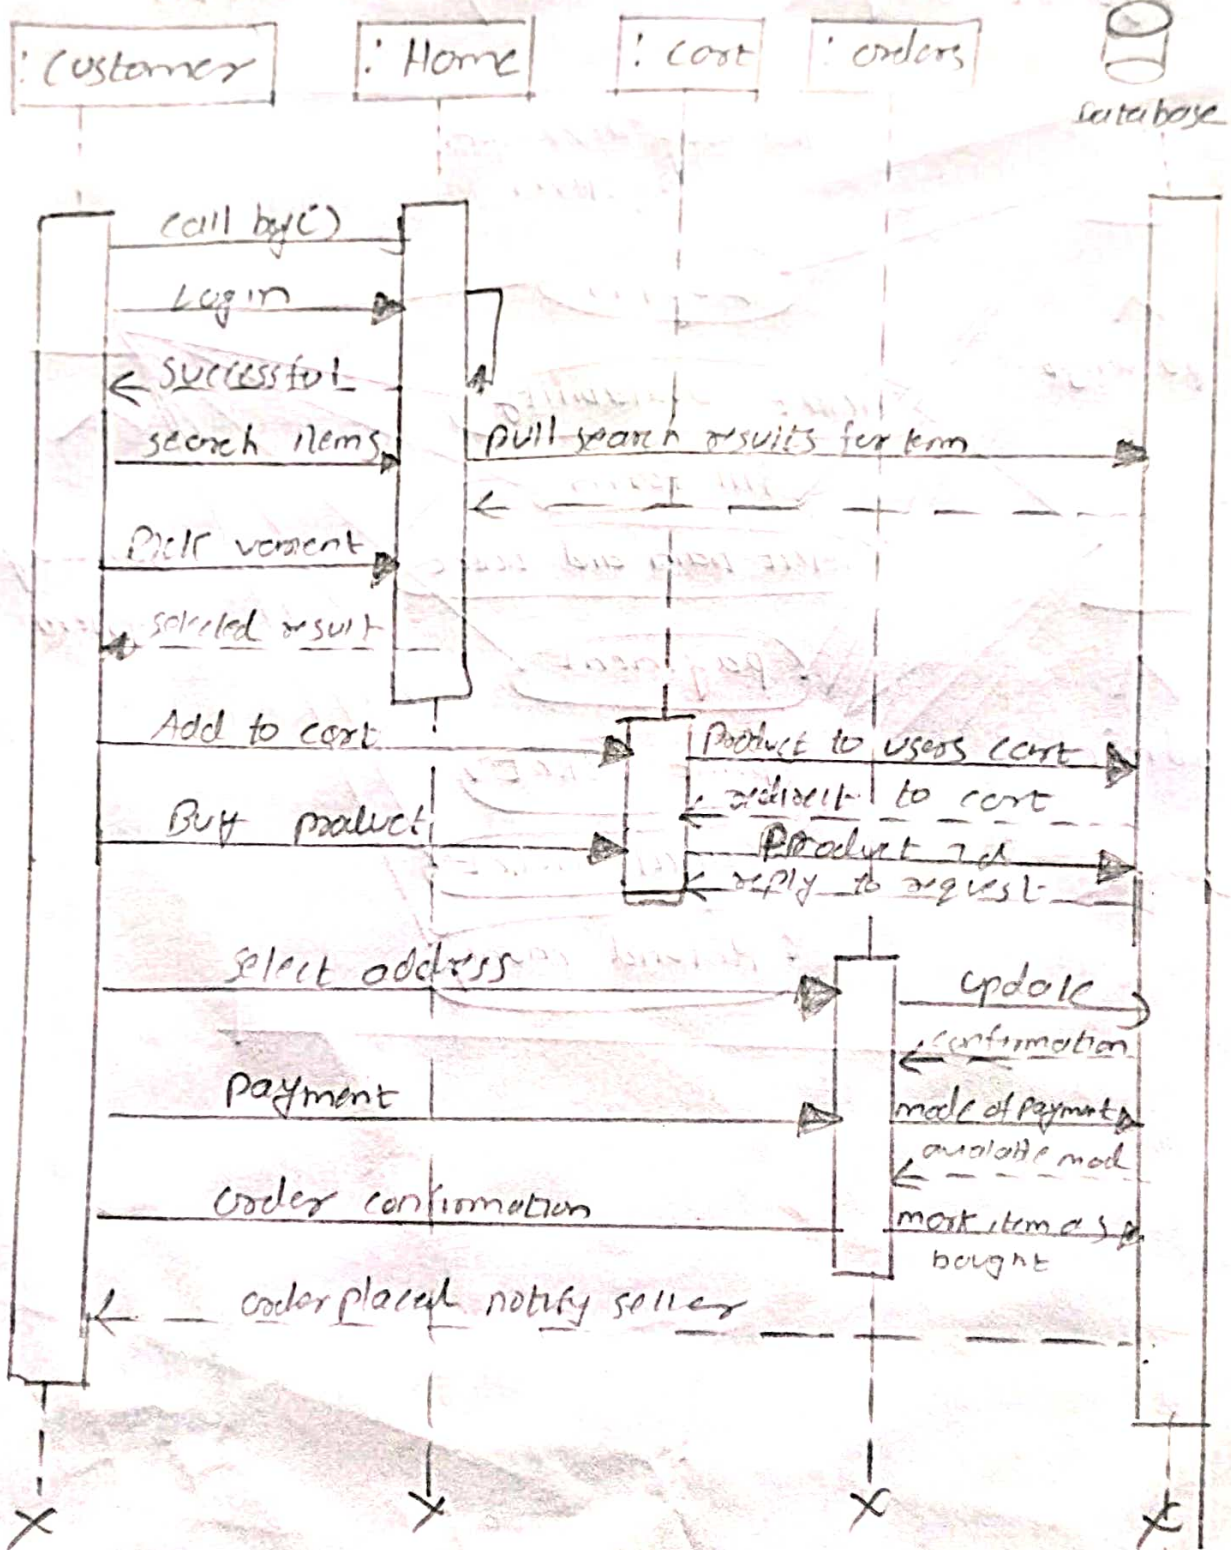 : Customer
: Home
: Cart
: orders
Database
call by()
Login
successful
search items
pull search results for term
Pick varient
selected result
Add to cart
Product to users cart
redirect to cart
Buy product
Product id
reply to request
select address
update
confirmation
payment
mode of payment
available mod
order confirmation
mark item as
bought
order placed notify seller